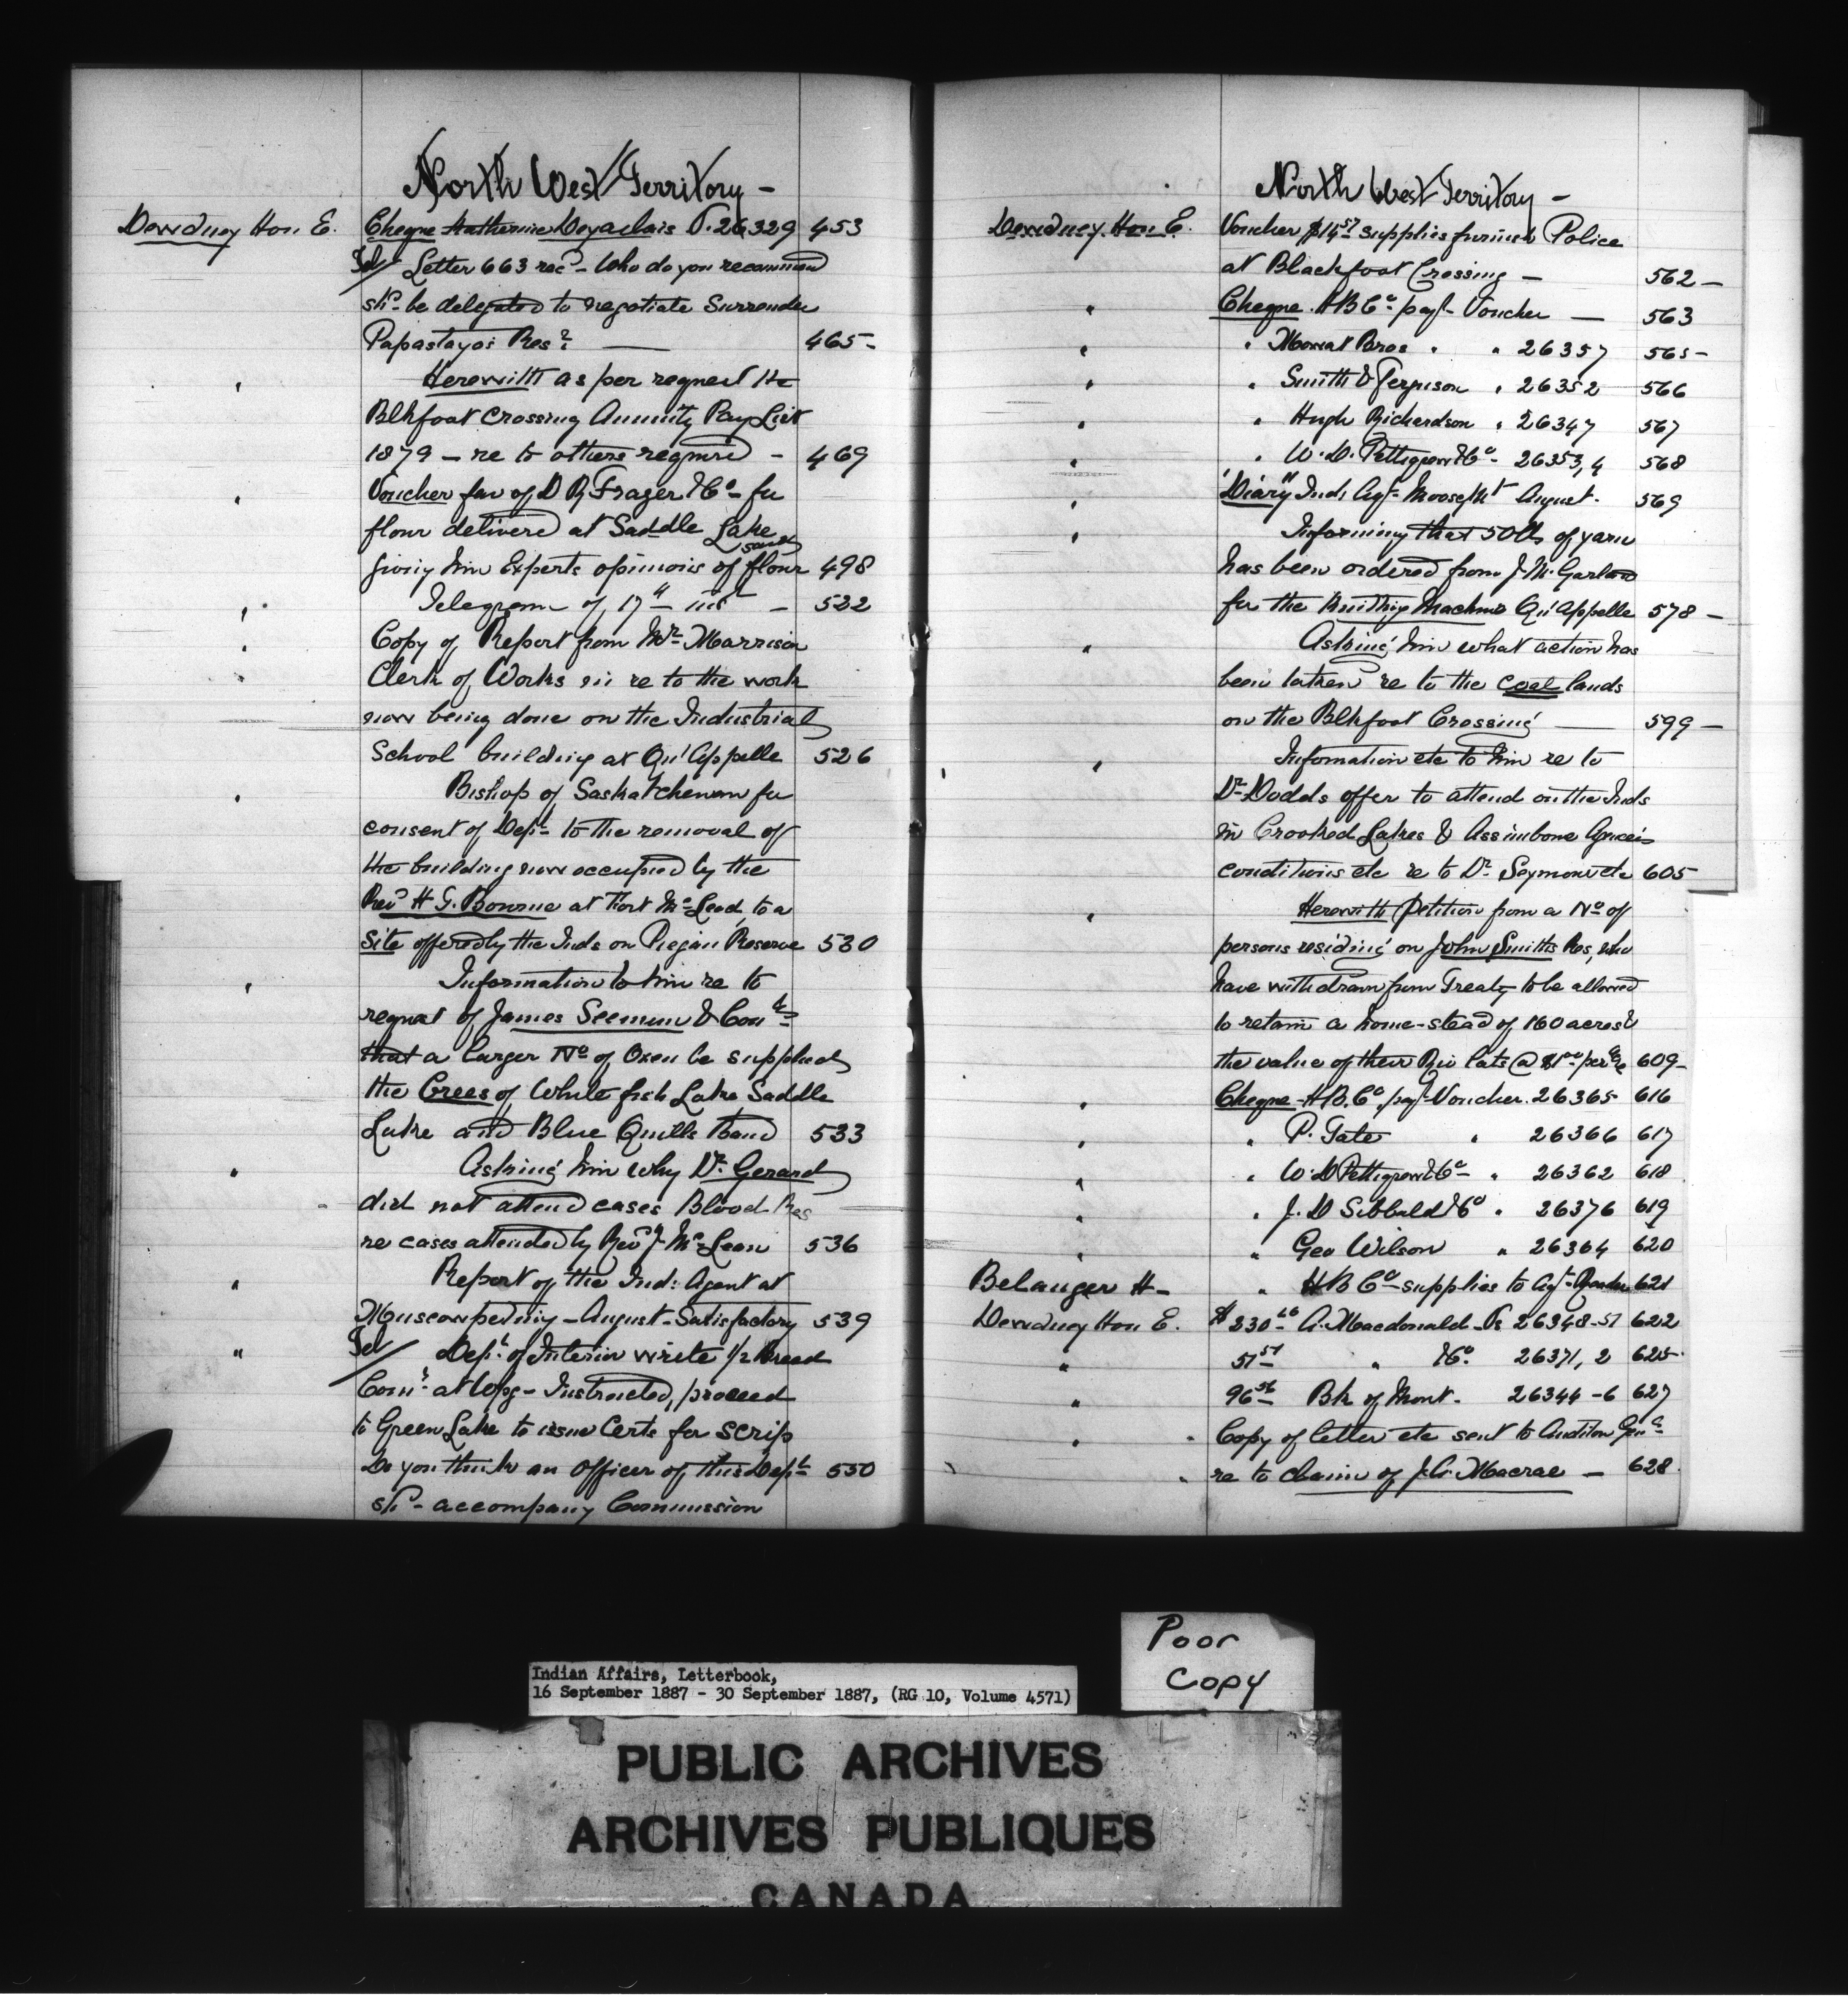 North West Territory -
Dewdney Hon E. Cheque Katherine Deyaclais V. 26329 453
Tel/ Letter 663 recd - Who do you recommend
shd be delegated to negotiate Surrender
Papastayo's Resn? — 465 -
" Herewith as per request the
Blkfoot Crossing Annuity Pay List
1879 - re to others required - 469
" Voucher fav of D R Frazer & Co - for
flour delivered at Saddle Lake
giving him Experts opinions of flour 498
" Telegram of 17th inst - 522
" Copy of Report from Mr Marrison
" Clerk of Works in re to the work
now being done on the Industrial
School building at Qu'Appelle 526
" Bishop of Saskatchewan for
consent of Dept to the removal of
the building now occupied by the
Revd H T. Bourne at Fort McLeod, to a
Site offered by the Inds on Piegan Reserve 530
" Information to him re to
request of James Seenum & Coun
that a larger No of Oxen be supplied
the Crees of White fish Lake Saddle
Lake and Blue Quills Band 533
" Asking him why Dr Gerard
did not attend cases Blood Res
re cases attended by Revd J. McLean 536
" Report of the Ind: Agent at
Muscowpetung - August - Satisfactory 539
" Tel/ Dept of Interior write 1/2 breed
Comr at Wpg - Instructed, proceed
to Green Lake to issue Certs for scrip
Do you think an Officer of this Dept 550
shd - accompany Commission
North West Territory -
Dewdney Hon E. Voucher $14.57 supplies furnished Police
at Blackfoot Crossing - 562 -
" Cheque H B Co - payt Voucher — 563
" " Mowat Bros " " 26357 565 -
" " Smith & Ferguson " 26352 566
" " Hugh Richardson " 26347 567
" " W. D. Pettigrew & Co - 26353,4 568
" "Diary" Ind: Agt - Moose Mt August - 569
" Informing that 50 lbs of yarn
has been ordered from J. M. Garland
for the Knitting Machines Qu'Appelle 578 -
" Asking him what action has
been taken re to the coal lands
on the Blkfoot Crossing — 599 -
" Information etc to him re to
Dr Dodds offer to attend on the Inds
in Crooked Lakes & Assinibone Agencies
conditions etc re to Dr Seymour etc 605 -
" Herewith petition from a No of
persons residing on John Smiths Res, who
have withdrawn from Treaty to be allowed
to retain a home-stead of 160 acres &
the value of their Riv lots @ $1.00 per acre 609 -
" Cheque - H B. Co. payt Voucher. 26365 616
" " P. Tate " 26366 617
" " W. D Pettigrew & Co - " 26362 618
" " J. D Sibbald & Co " 26376 619
" " Geo Wilson " 26364 620
Belanger H - " H B Co - supplies to Agt - 621
Dewdney Hon E. $230.26 A. Macdonald - Vs 26348-51 622
" 51.51 " & Co. 26371, 2 625 -
" 96.56 Bk of Mont - 26344 - 6 627
" Copy of letter etc sent to Auditor Genl
re to claim of J. A. Macrae - 628
Poor
Copy
Indian Affairs, Letterbook,
16 September 1887 - 30 September 1887, (RG 10, Volume 4571)
PUBLIC ARCHIVES
ARCHIVES PUBLIQUES
CANADA